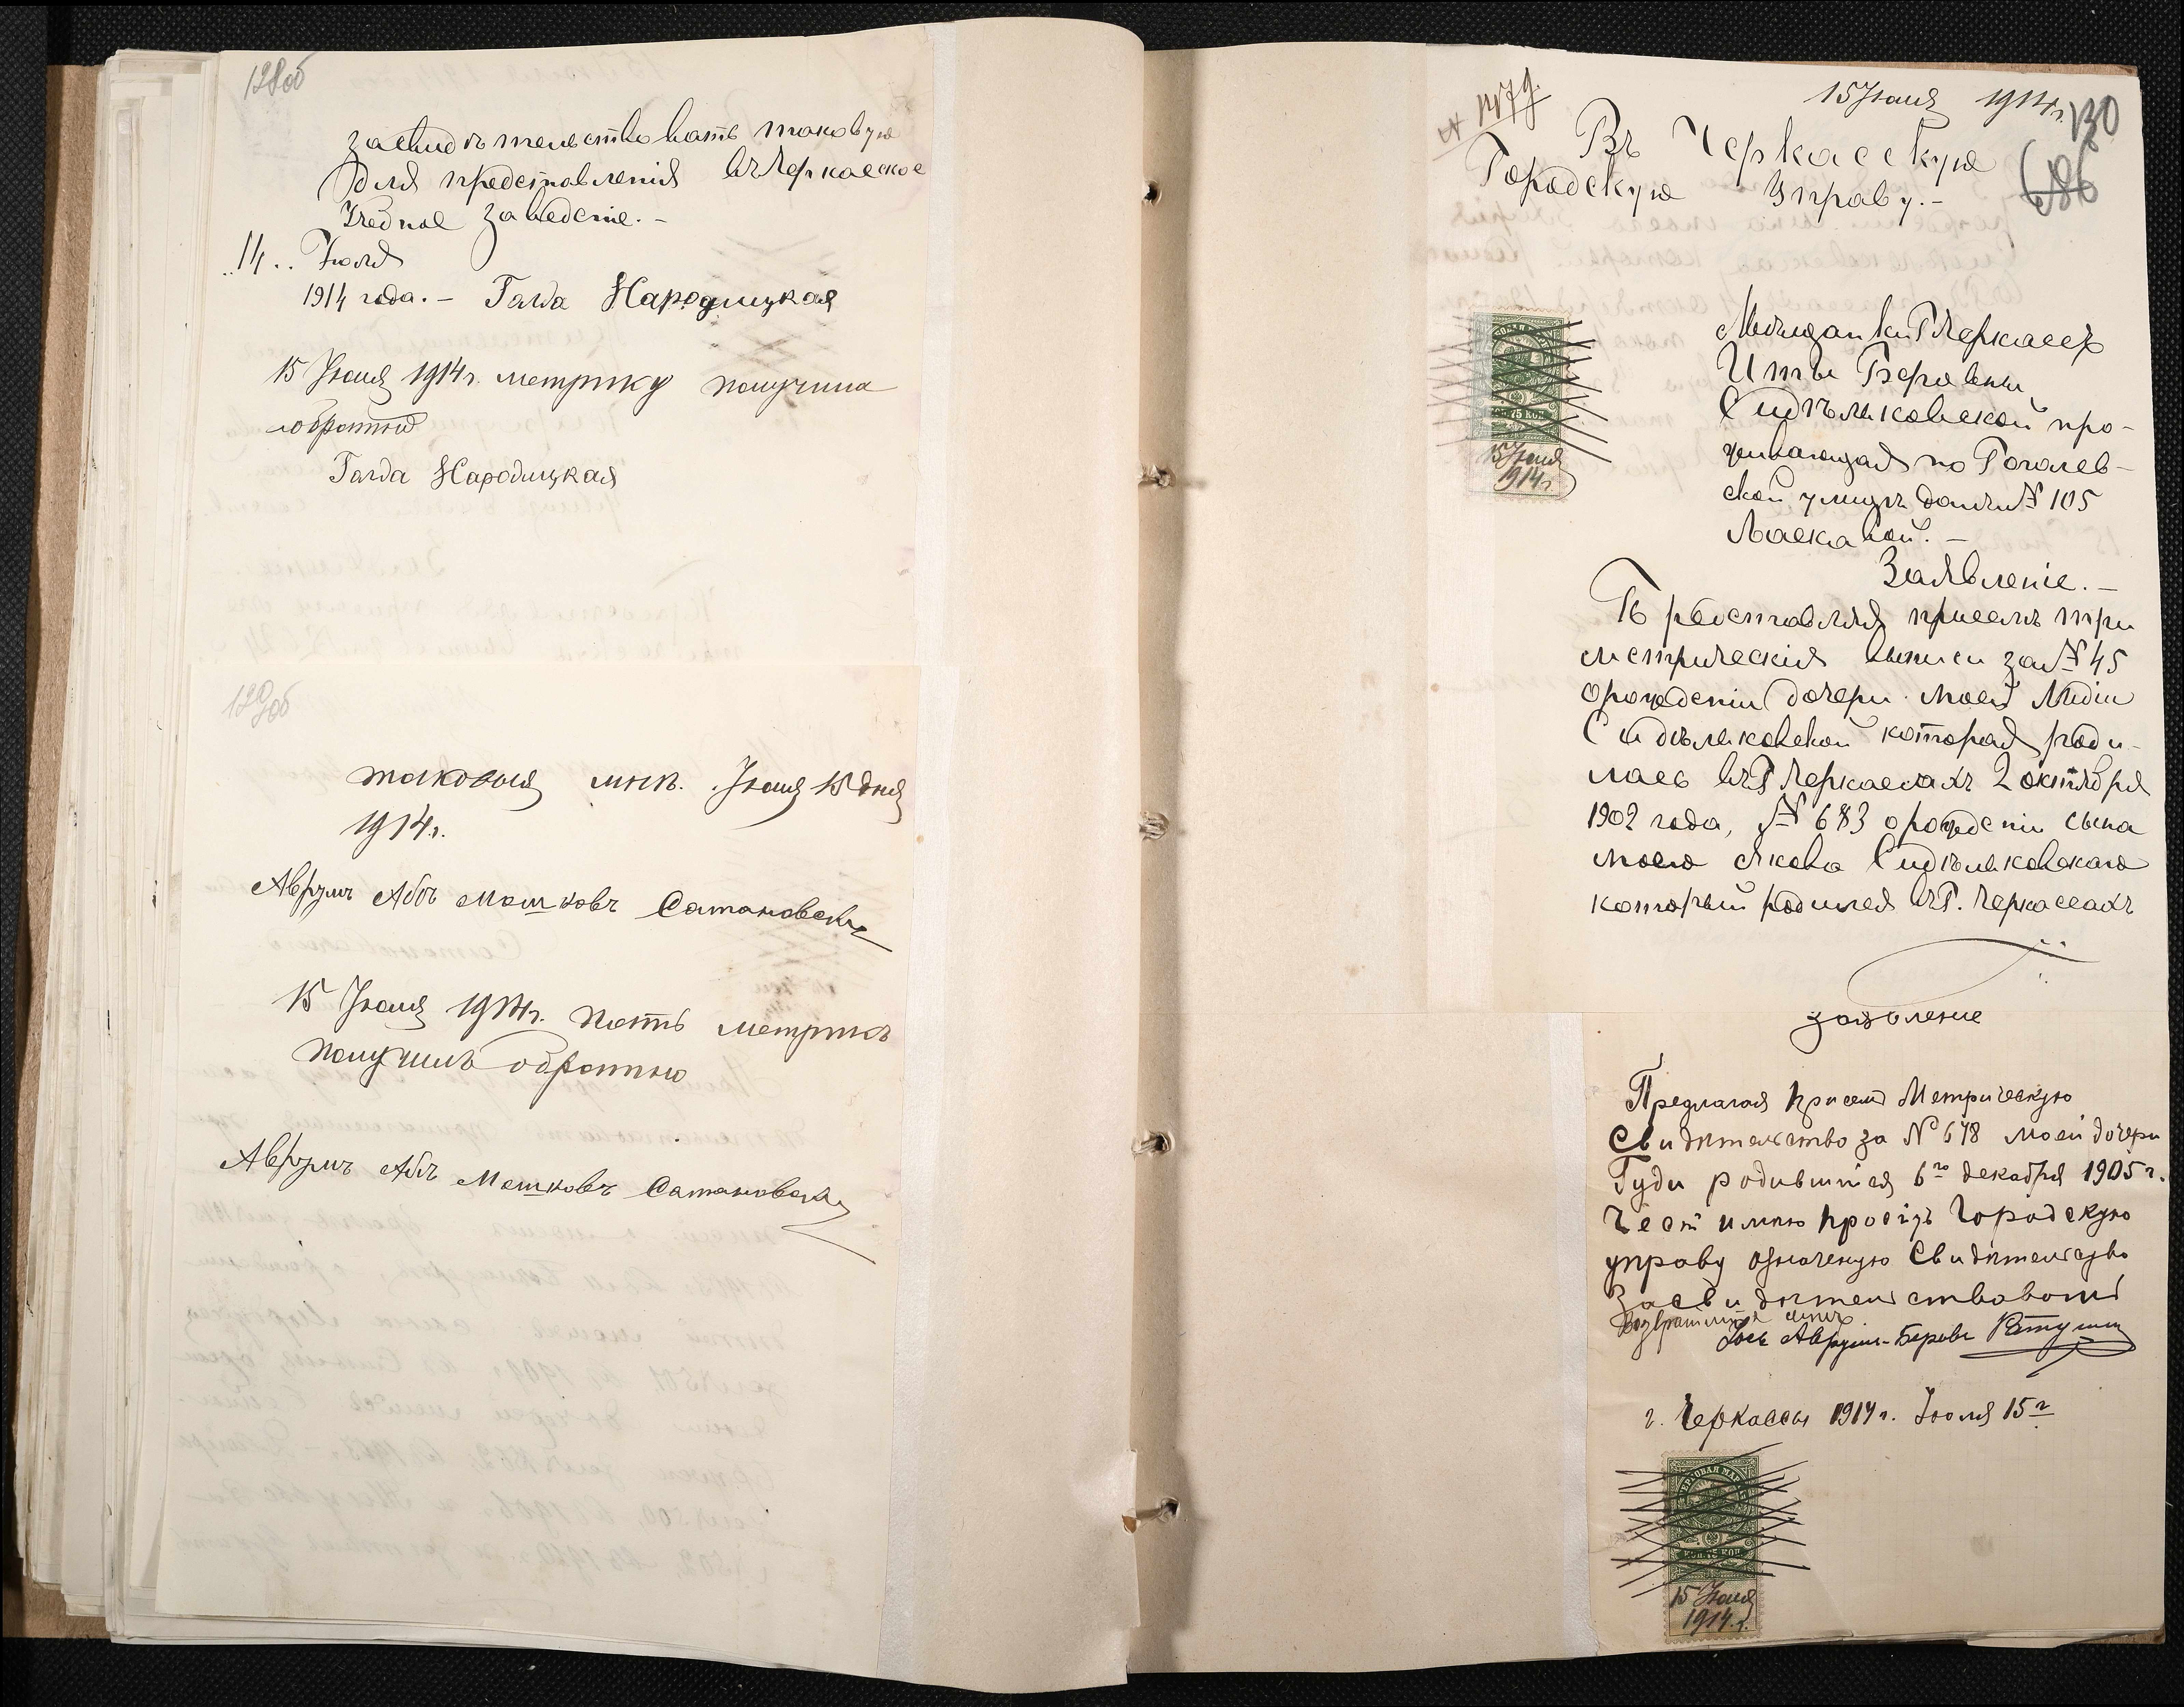 128об
засвидѣтельствовать таковую
для представленія въ Черкасское
Учебное заведеніе. –
14.. Іюля
1914 года. – Голда Народицкая
15 Іюля 1914 г. метрику получила
обратно
Голда Народицкая
129об
таковыя мнѣ. Іюля 15 дня
1914 г.
Аврумъ Аба Мошковъ Сатановскій
15 Іюля 1914 г. пять метрикъ
получилъ обратно
Аврумъ Аба Мошковъ Сатановскій
15 Іюля 1914 г.
130
686
Въ Черкасскую
Городскую Управу. –
Мѣщанки Г Черкассъ
Иты Беровны
Сидѣльковской про-
живающая по Гоголев-
ской улицѣ домъ № 105
Ласкавой. –
КОП. 75 КОП.
15 Іюля
1914 г.
Заявленіе. –
Представляя присемъ три
метрическія выписи за № 45
орожденіи дочери моей Лидіи
Сидѣльковской которая роди-
лась въ Г Черкассахъ 2 октября
1902 года, № 683 орожденіи сына
моего Якова Сидѣльковскаго
который родился въ Г. Черкассахъ
заявление
Предлагая присемъ Метрическую
Свидѣтельство за № 678 моей дочери
Гуди родившійся 6го декабря 1905 г.
Чест имѣю просить Городскую
управу означеную Свидѣтельство
Засвидѣтельствовать
Возвратить
Аврумъ-Беровъ Ратушн
г. Черкассы 1914 г. Іюля 15 г
ГЕРБОВАЯ МАРКА
КОП. 75 КОП.
15 Іюля
1914 г.